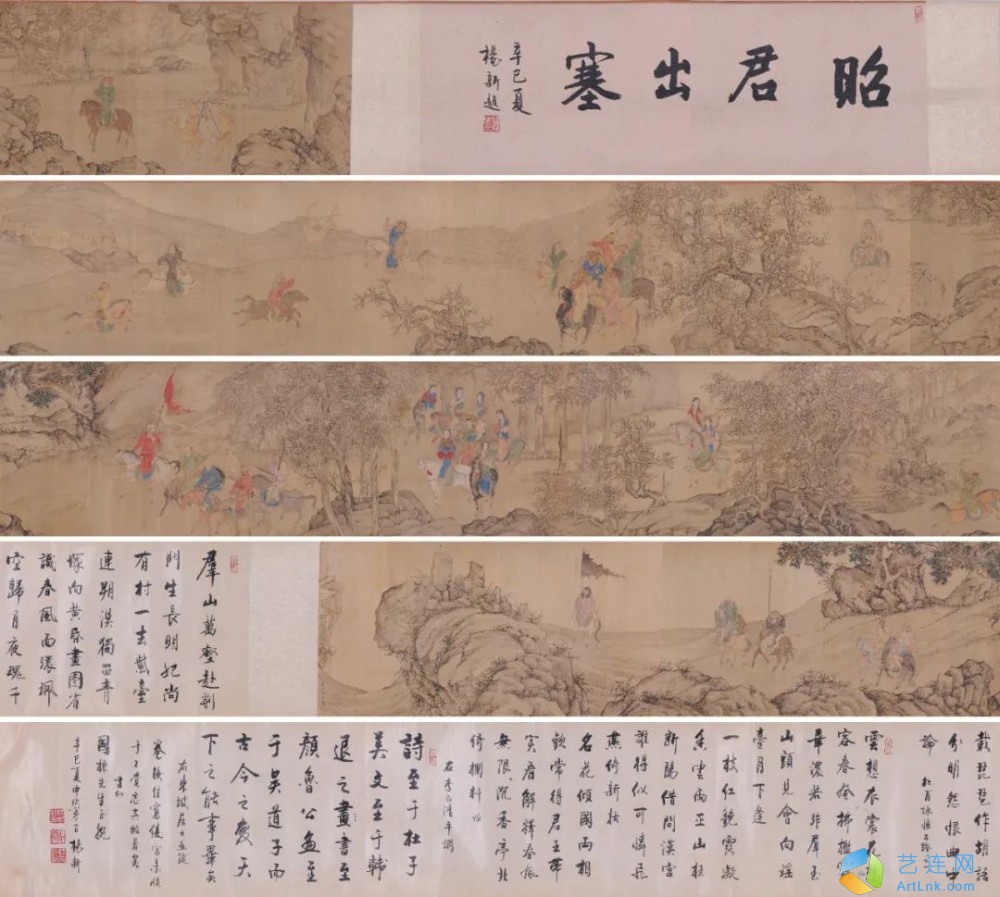 昭君出塞
辛巳夏
楊新題
羣山萬壑赴荆
門生長明妃尚
有村一去紫臺
連朔漠獨留青
塚向黄昏畫圖省
識春風面環珮
空歸月夜魂千
載琵琶作胡語
分明怨恨曲中
論 杜甫詠懷古跡
雲想衣裳花
容春風拂檻
華濃若非羣玉
山頭見會向瑶
臺月下逢
一枝紅艷露凝
香雲雨巫山枉
斷腸借問漢宫
誰得似可憐飛
燕倚新妝
名花傾國兩相
歡常得君王帶
笑看解釋春風
無限沉香亭北
倚欄杆 恨
右李白清平調
詩至于杜子
美文至于韓
退之畫書至
顔魯公畫至
于吴道子而
古今之變天
下之能事畢矣
右東坡居士畫跋
國
先生
辛巳夏
楊新
艺连网
ArtLnk.com